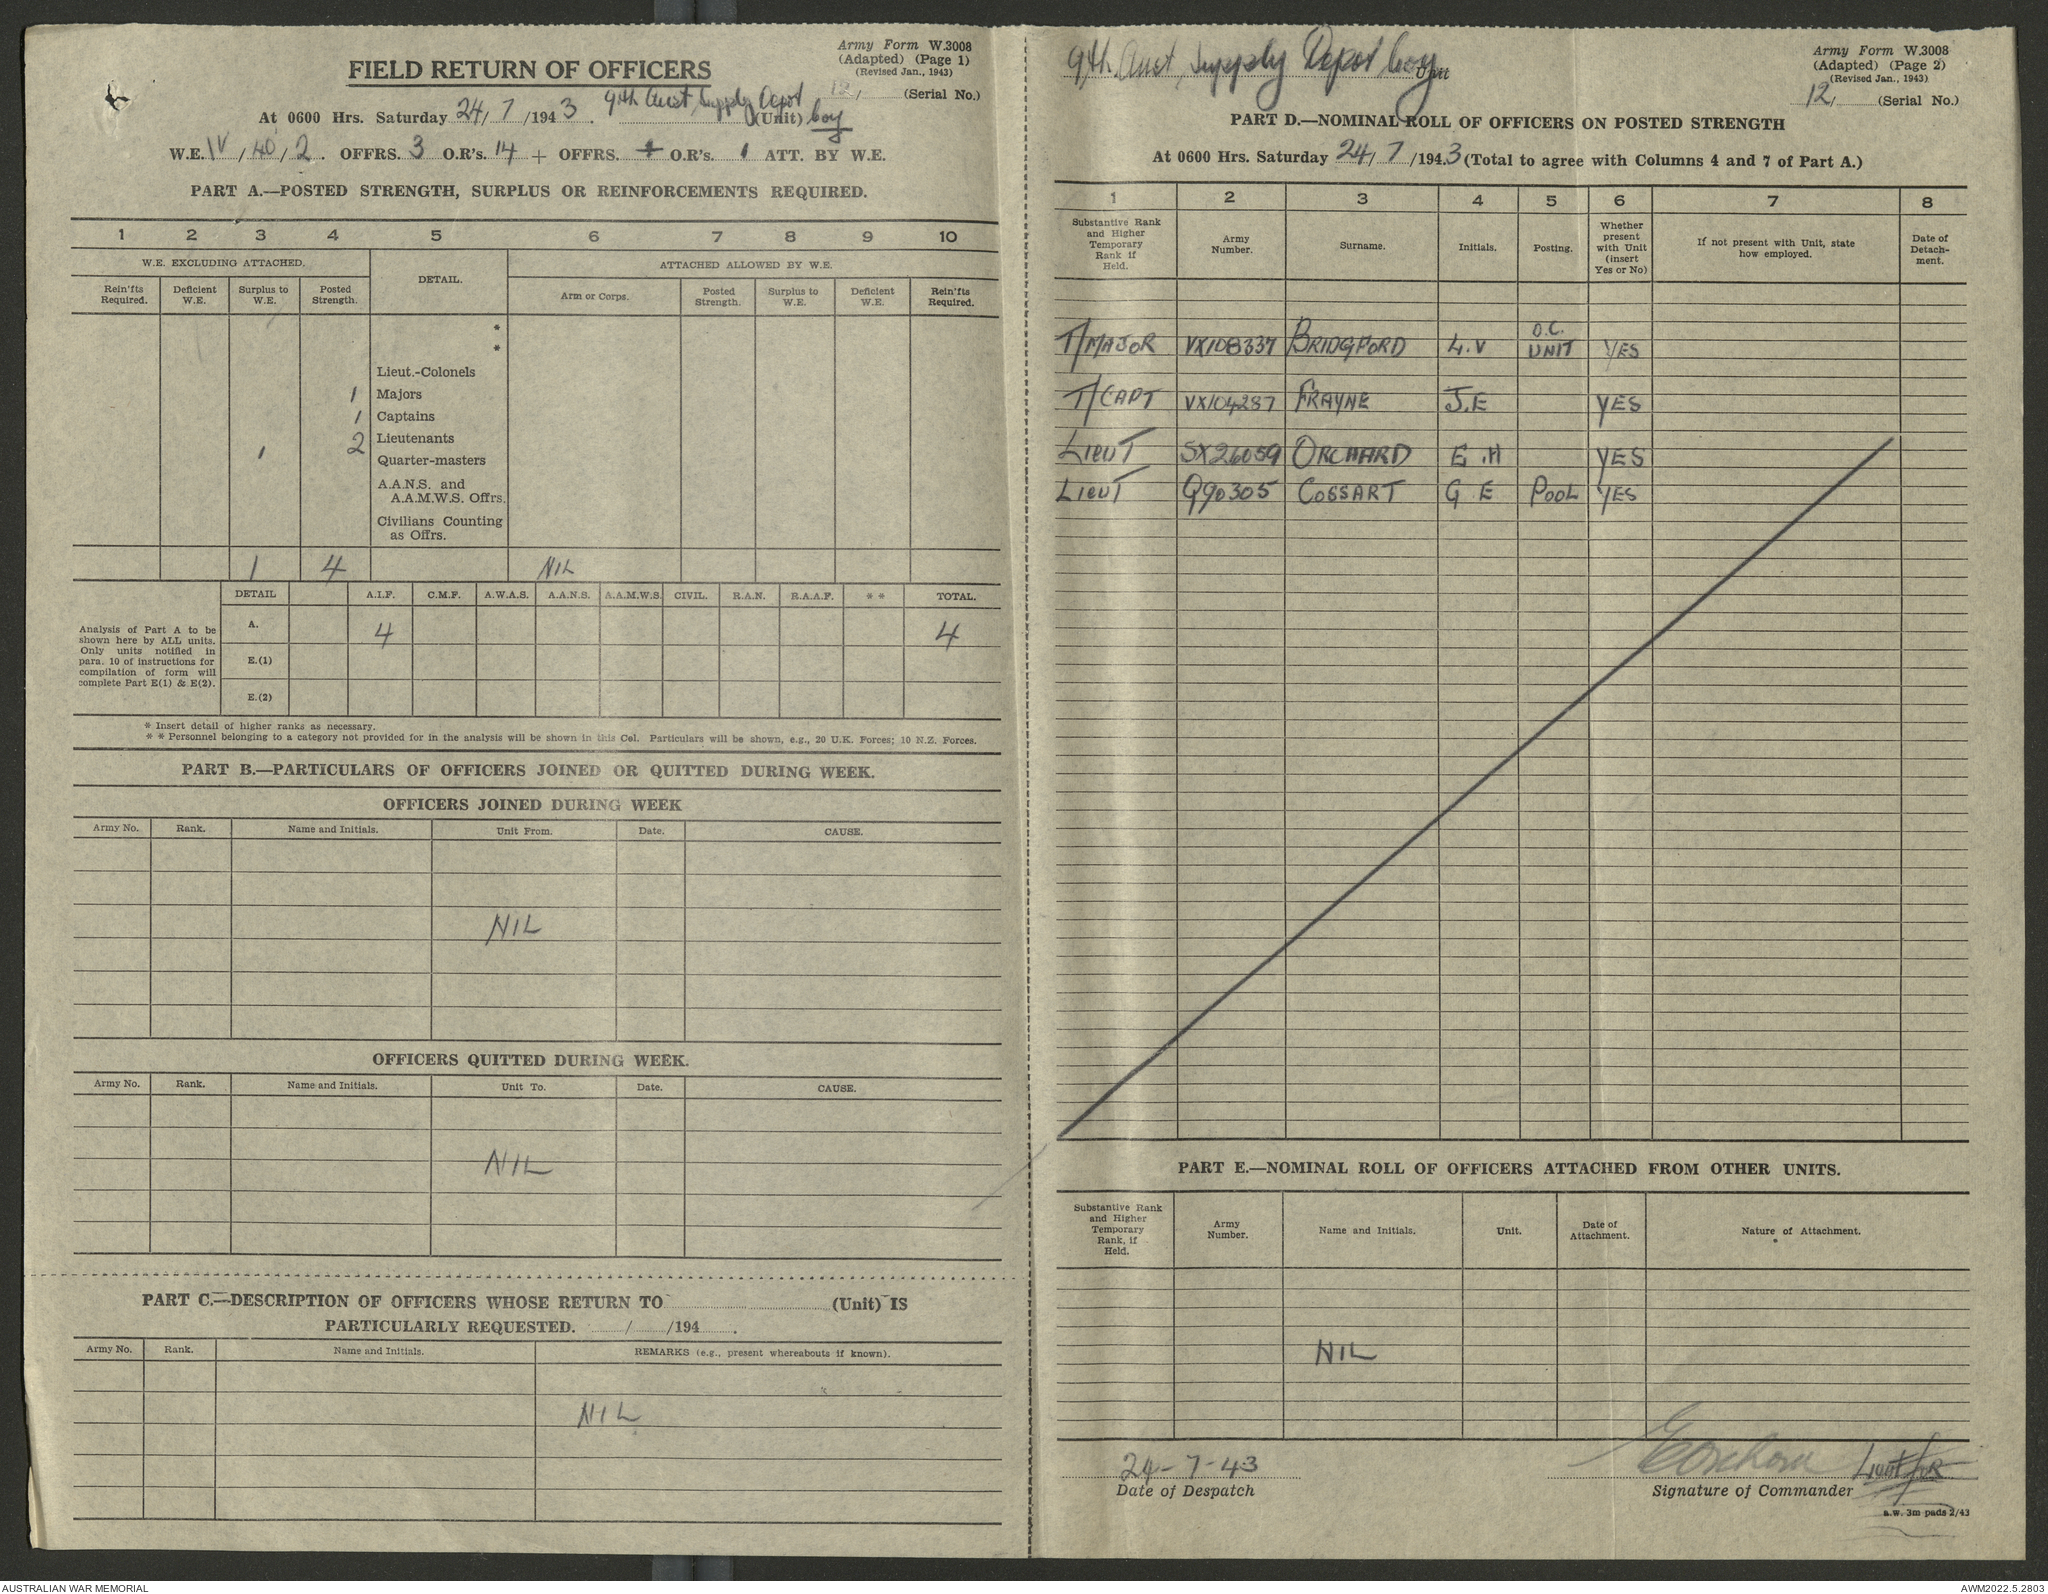 Army Form W.3008
(Adapted) (Page 1)
(Revised Jan., 1943)
FIELD RETURN OF OFFICERS
12, (Serial No.)
At 0600 Hrs. Saturday 24/7/1943. 9th Aust Supply Depot (Unit) Coy
W.E. IV/40/2. OFFRS. 3 O.R's. 14 + OFFRS. O.R's. 1 ATT. BY W.E.
PART A.—POSTED STRENGTH, SURPLUS OR REINFORCEMENTS REQUIRED.
1 2 3 4 5 6 7 8 9 10
W.E. EXCLUDING ATTACHED. DETAIL. ATTACHED ALLOWED BY W.E.
Rein'fts Required. Deficient W.E. Surplus to W.E. Posted Strength. Arm or Corps. Posted Strength. Surplus to W.E. Deficient W.E. Rein'fts Required.
*
*
Lieut.-Colonels
1 Majors
1 Captains
1 2 Lieutenants
Quarter-masters
A.A.N.S. and
A.A.M.W.S. Offrs.
Civilians Counting
as Offrs.
1 4 NIL
DETAIL A.I.F. C.M.F. A.W.A.S. A.A.N.S. A.A.M.W.S. CIVIL. R.A.N. R.A.A.F. * * TOTAL.
Analysis of Part A to be
shown here by ALL units.
Only units notified in
para. 10 of instructions for
compilation of form will
complete Part E(1) & E(2).
A. 4 4
E.(1)
E.(2)
* Insert detail of higher ranks as necessary.
* * Personnel belonging to a category not provided for in the analysis will be shown in this Col. Particulars will be shown, e.g., 20 U.K. Forces; 10 N.Z. Forces.
PART B.—PARTICULARS OF OFFICERS JOINED OR QUITTED DURING WEEK.
OFFICERS JOINED DURING WEEK
Army No. Rank. Name and Initials. Unit From. Date. CAUSE.
NIL
OFFICERS QUITTED DURING WEEK.
Army No. Rank. Name and Initials. Unit To. Date. CAUSE.
NIL
PART C.—DESCRIPTION OF OFFICERS WHOSE RETURN TO (Unit) IS
PARTICULARLY REQUESTED. / /194 .
Army No. Rank. Name and Initials. REMARKS (e.g., present whereabouts if known).
NIL
9th Aust, Supply Depot Coy Unit
Army Form W.3008
(Adapted) (Page 2)
(Revised Jan., 1943)
12, (Serial No.)
PART D.—NOMINAL ROLL OF OFFICERS ON POSTED STRENGTH
At 0600 Hrs. Saturday 24/7/1943 (Total to agree with Columns 4 and 7 of Part A.)
1 2 3 4 5 6 7 8
Substantive Rank and Higher Temporary Rank if Held. Army Number. Surname. Initials. Posting. Whether present with Unit (insert Yes or No) If not present with Unit, state how employed. Date of Detach-ment.
T/MAJOR VX108337 BRIDGFORD L.V O.C. UNIT YES
T/CAPT VX104287 FRAYNE J.E YES
LIEUT SX26059 ORCHARD E.H YES
LIEUT Q90305 COSSART G E POOL YES
PART E.—NOMINAL ROLL OF OFFICERS ATTACHED FROM OTHER UNITS.
Substantive Rank and Higher Temporary Rank, if Held. Army Number. Name and Initials. Unit. Date of Attachment. Nature of Attachment.
NIL
24-7-43 Lieut for
Date of Despatch Signature of Commander
a.w. 3m pads 2/43
AUSTRALIAN WAR MEMORIAL AWM2022.5.2803